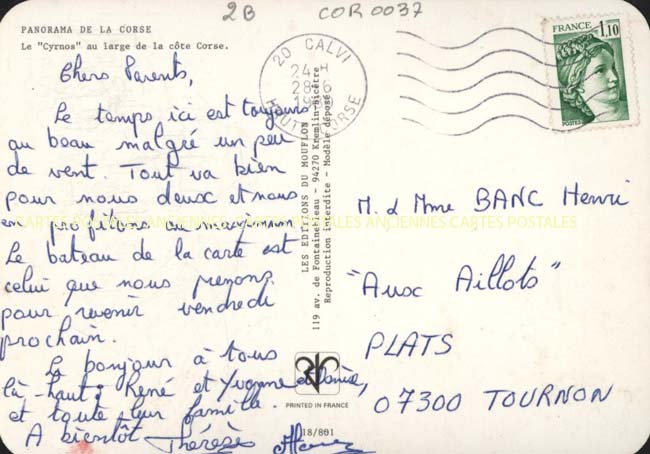 2B COR0037
PANORAMA DE LA CORSE
Le "Cyrnos" au large de la côte Corse.
20 CALVI
24 H
28-6
HAUTE CORSE
FRANCE 1,10
POSTES
Chers Parents,
Le temps ici est toujours
au beau malgré un peu
de vent. Tout va bien
pour nous deux et nous
en profitons au maximum
Le bateau de la carte est
celui que nous prenons
pour revenir vendredi
prochain.
Le bonjour à tous
là-haut, René et Yvonne et
et toute leur famille.
A bientôt Thérèse
CARTES POSTALES ANCIENNES CARTES POSTALES ANCIENNES CARTES POSTALES
LES EDITIONS DU MOUFLON
119 av. de Fontainebleau - 94270 Kremlin-Bicêtre
Reproduction interdite - Modèle déposé
M. & Mme BANC Henri
"Aux Aillots"
PLATS
07300 TOURNON
PRINTED IN FRANCE
18/801